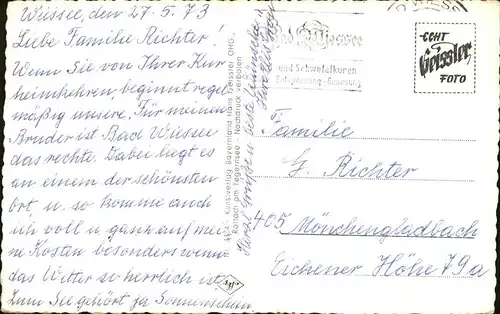 Wiessee, den 27.5.73
Liebe Familie Richter!
Wenn Sie von Ihrer Kur
heimkehren, beginnt regel
mäßig unsere. Für meinen
Bruder ist Bad Wiessee
das rechte. Dabei liegt es
an einem der schönsten
Ort u. so komme auch
ich voll u. ganz auf mei
ne Kosten besonders wenn
das Wetter so herrlich ist.
Zum See gehört ja Sonnenschein.
Kunstverlag Bayernland Hans Geissler OHG.
Rottach am Tegernsee - Nachdruck verboten
Bad Wiessee
und Schwefelkuren
Entspannung - Genesung
ECHT
Geissler
FOTO
Familie
G. Richter
405 Mönchengladbach
Eichener Höhe 79a